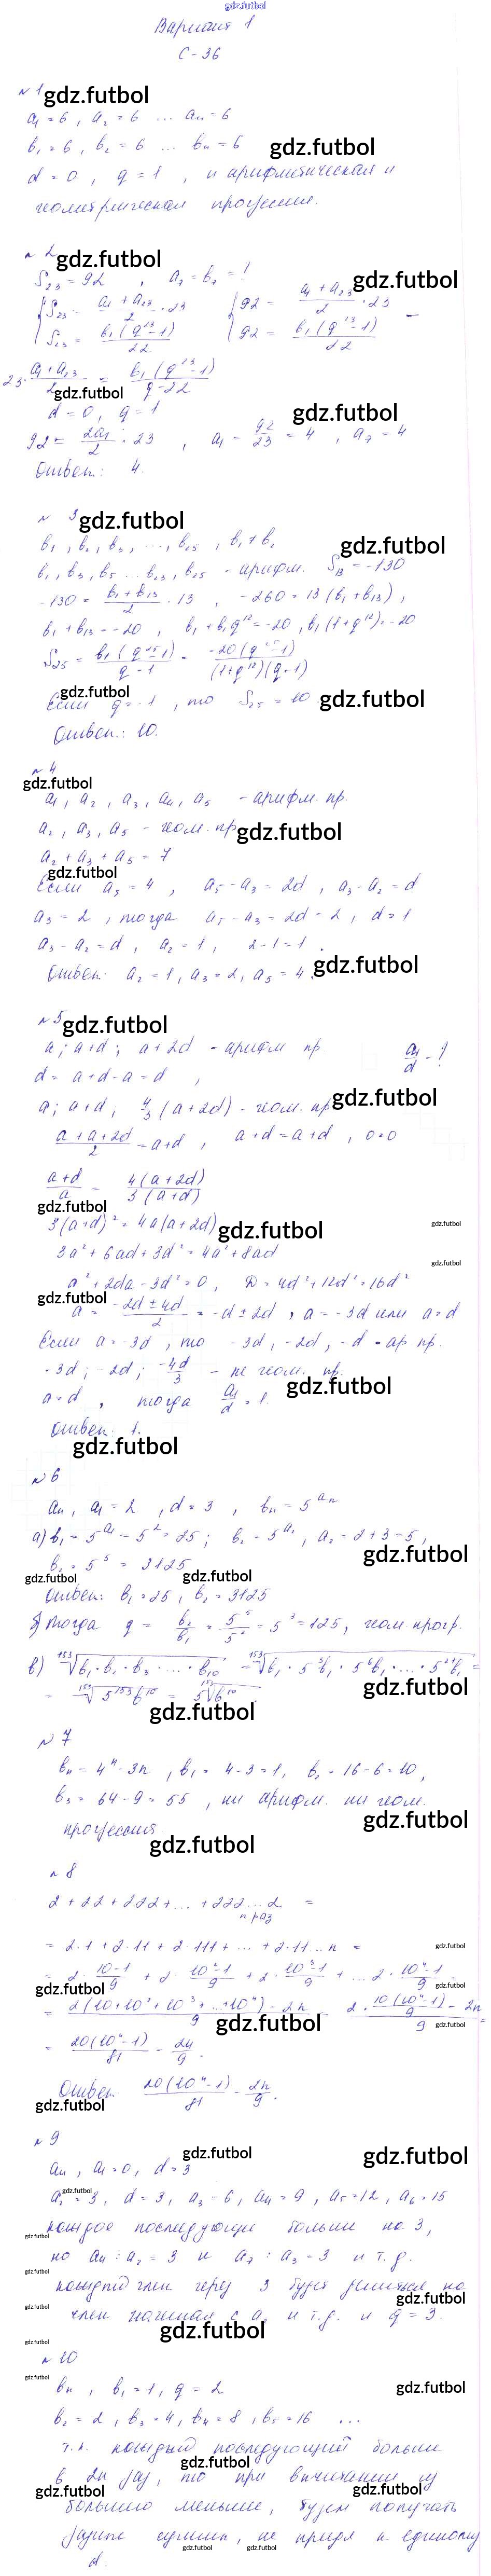 gdz.futbol
Вариант 1
С-36
№ 1 gdz.futbol
a₁ = 6, a₂ = 6 ... aₙ = 6
b₁ = 6, b₂ = 6 ... bₙ = 6 gdz.futbol
d = 0, q = 1, и арифметическая и
геометрическая прогрессии.
№ 2 gdz.futbol
S₂₃ = 92, a₇ = b₇ = ? gdz.futbol
d = 0, q = 1 gdz.futbol
92 = 2a₁/2 · 23, a₁ = 92/23 = 4, a₇ = 4
Ответ: 4.
№ 3 gdz.futbol
b₁, b₂, b₃, ..., b₂₅, b₁ ≠ b₂
b₁, b₃, b₅ ... b₂₃, b₂₅ - арифм. S₁₃ = -130 gdz.futbol
-130 = (b₁ + b₁₃)/2 · 13, -260 = 13(b₁ + b₁₃),
b₁ + b₁₃ = -20, b₁ + b₁q¹² = -20, b₁(1+q¹²) = -20
S₂₅ = b₁(q²⁵-1)/(q-1) = -20(q²⁵-1)/((1+q¹²)(q-1))
gdz.futbol
Если q = -1, то S₂₅ = 10 gdz.futbol
Ответ: 10.
№ 4
gdz.futbol
a₁, a₂, a₃, a₄, a₅ - арифм. пр.
a₂, a₃, a₅ - геом. пр gdz.futbol
a₂ + a₃ + a₅ = 7
gdz.futbol
Если a₅ = 4, a₅ - a₃ = 2d, a₃ - a₂ = d
a₃ = 2, тогда a₅ - a₃ = 2d = 2, d = 1
a₃ - a₂ = d, a₂ = 1, 2-1 = 1.
Ответ: a₂ = 1, a₃ = 2, a₅ = 4. gdz.futbol
№ 5 gdz.futbol
a; a+d; a+2d - арифм пр a₁/d - ?
d = a+d-a = d,
a; a+d; 4/3(a+2d) - геом. пр gdz.futbol
(a+a+2d)/2 = a+d, a+d = a+d, 0=0
(a+d)/a = 4(a+2d)/3(a+d)
gdz.futbol
3(a+d)² = 4a(a+2d) gdz.futbol
gdz.futbol
3a² + 6ad + 3d² = 4a² + 8ad
gdz.futbol
a² + 2da - 3d² = 0, D = 4d² + 12d² = 16d²
gdz.futbol
a = (-2d ± 4d)/2 = -d ± 2d, a = -3d или a = d
Если a = -3d, то -3d, -2d, -d - ар пр.
-3d; -2d; -4d/3 - не геом. пр.
a = d, тогда a₁/d = 1. gdz.futbol
Ответ: 1.
gdz.futbol
№ 6
aₙ, a₁ = 2, d = 3, bₙ = 5^aₙ
а) b₁ = 5^a₁ = 5² = 25; b₂ = 5^a₂, a₂ = 2+3 = 5,
b₂ = 5⁵ = 3125 gdz.futbol
gdz.futbol gdz.futbol
Ответ: b₁ = 25, b₂ = 3125
б) Тогда q = b₂/b₁ = 5⁵/5² = 5³ = 125, геом. прогр.
в) ¹⁵³√(b₁·b₂·b₃·...·b₁₀) = ¹⁵³√(b₁·5³b₁·5⁶b₁·...·5²⁷b₁) =
gdz.futbol
= ¹⁵³√(5¹⁵³b¹⁰) = 5 ¹⁵³√b¹⁰.
gdz.futbol
№ 7
bₙ = 4ⁿ - 3n, b₁ = 4-3 = 1, b₂ = 16-6 = 10,
b₃ = 64-9 = 55, ни арифм. ни геом. gdz.futbol
прогрессия.
gdz.futbol
№ 8
2 + 22 + 222 + ... + 222...2 =
n раз
= 2·1 + 2·11 + 2·111 + ... + 2·11...n = gdz.futbol
= 2·(10-1)/9 + 2·(10²-1)/9 + 2·(10³-1)/9 + ... 2·(10ⁿ-1)/9 =
gdz.futbol gdz.futbol
gdz.futbol gdz.futbol
= 20(10ⁿ-1)/81 - 2n/9.
Ответ: 20(10ⁿ-1)/81 - 2n/9.
gdz.futbol
№ 9
gdz.futbol gdz.futbol
aₙ, a₁ = 0, d = 3
gdz.futbol
a₂ = 3, d = 3, a₃ = 6, a₄ = 9, a₅ = 12, a₆ = 15
каждое последующие больше на 3,
gdz.futbol
но a₄ : a₂ = 3 и a₇ : a₃ = 3 и т.д.
gdz.futbol
каждый член через 3 будет делиться на
gdz.futbol gdz.futbol
член начиная с a₂ и т.д. и q = 3.
gdz.futbol
gdz.futbol
№ 10
gdz.futbol
bₙ, b₁ = 1, q = 2 gdz.futbol
b₂ = 2, b₃ = 4, b₄ = 8, b₅ = 16 ...
т.к. каждый последующий больше
gdz.futbol
в 2n раз, то при вычитании из
gdz.futbol gdz.futbol
большего меньшие, будем получать
разные суммы, не придя к единому
gdz.futbol gdz.futbol
d.